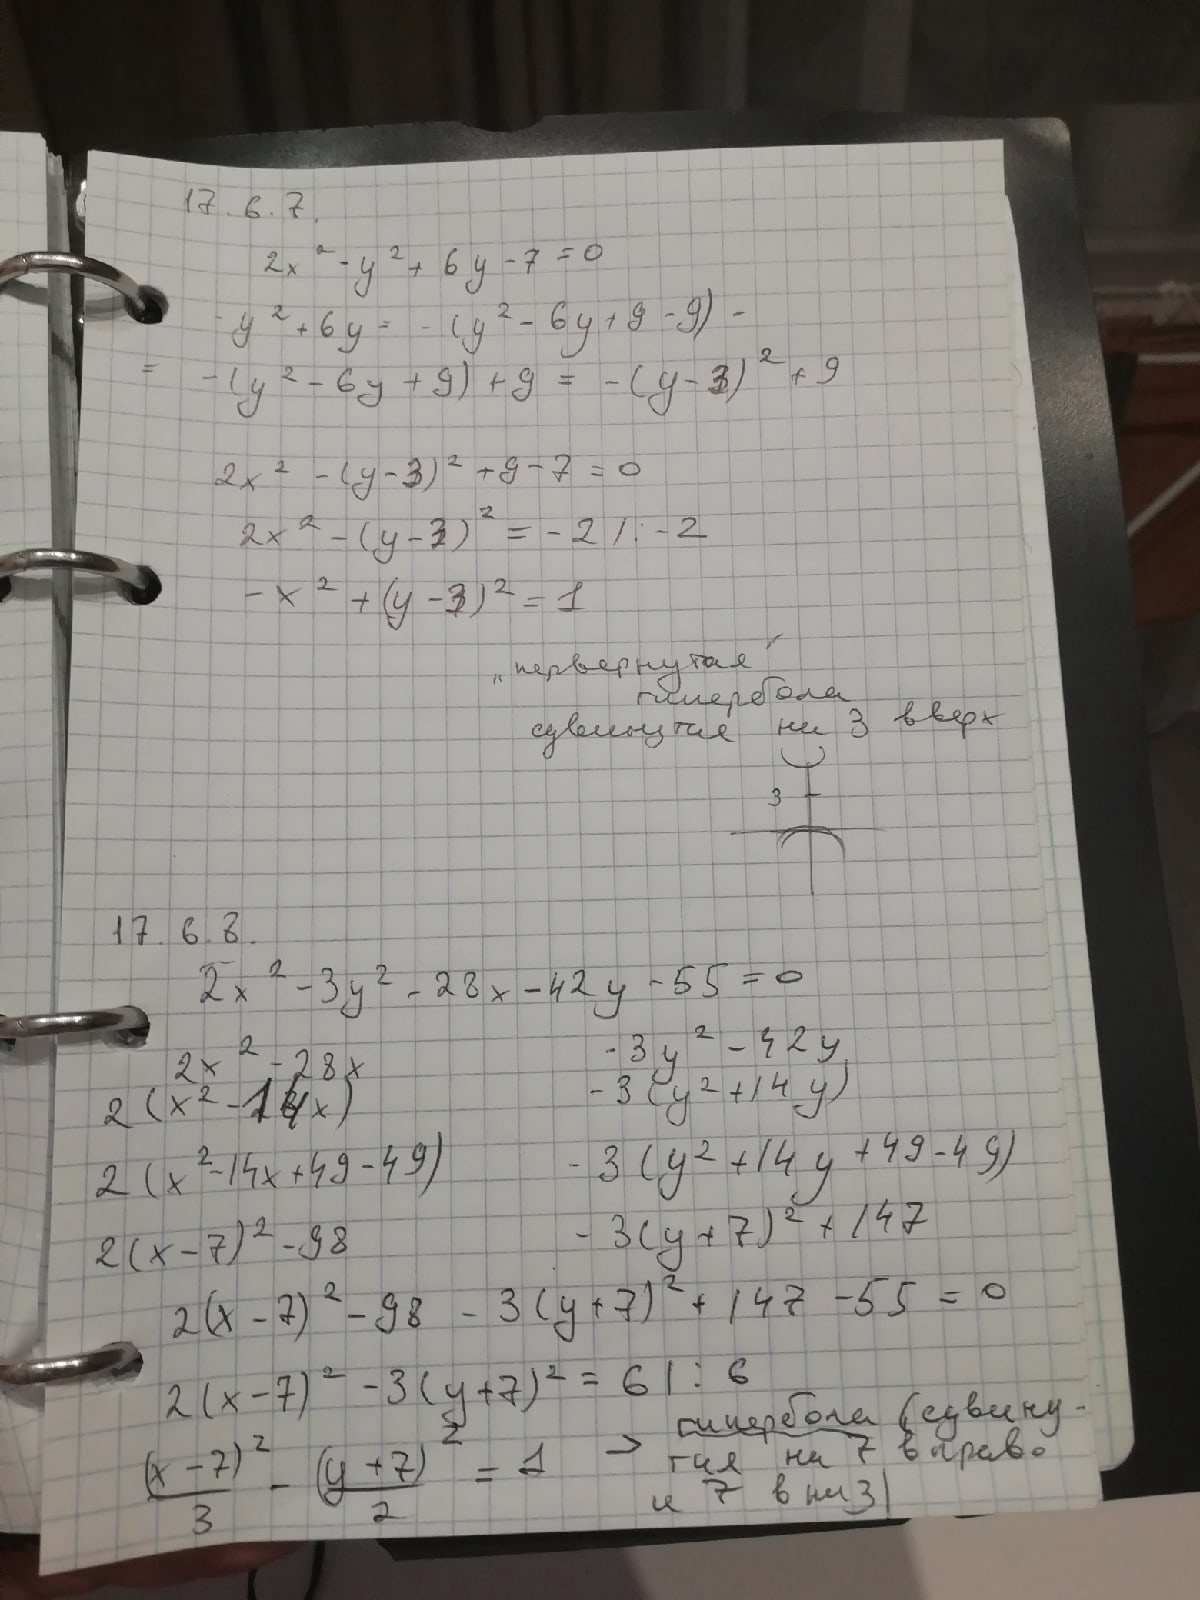 17.6.7.
2x² - y² + 6y - 7 = 0
-y² + 6y = -(y² - 6y + 9 - 9) =
= -(y² - 6y + 9) + 9 = -(y - 3)² + 9
2x² - (y - 3)² + 9 - 7 = 0
2x² - (y - 3)² = -2 | : -2
-x² + (y - 3)² = 1
„первернутая"
гипербола
сдвинутая на 3 вверх
3
17.6.8.
2x² - 3y² - 28x - 42y - 55 = 0
2x² - 28x   -3y² - 42y
2(x² - 14x)   -3(y² + 14y)
2(x² - 14x + 49 - 49)   -3(y² + 14y + 49 - 49)
2(x - 7)² - 98   -3(y + 7)² + 147
2(x - 7)² - 98 - 3(y + 7)² + 147 - 55 = 0
2(x - 7)² - 3(y + 7)² = 6 | : 6
(x - 7)²/3 - (y + 7)²/2 = 1 → гипербола (сдвину-
тая на 7 вправо
и 7 вниз)